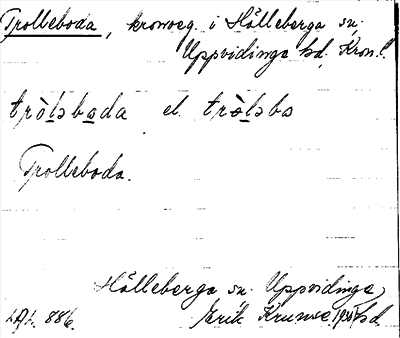 Trolleboda, kronoeg. i Hälleberga sn.
Uppvidinge hd, Kron. l.
tròlsbada el. tròlsbo
Trolleboda.
Hälleberga sn. Uppvidinge
Erik Krunse hd.
LAL. 886.